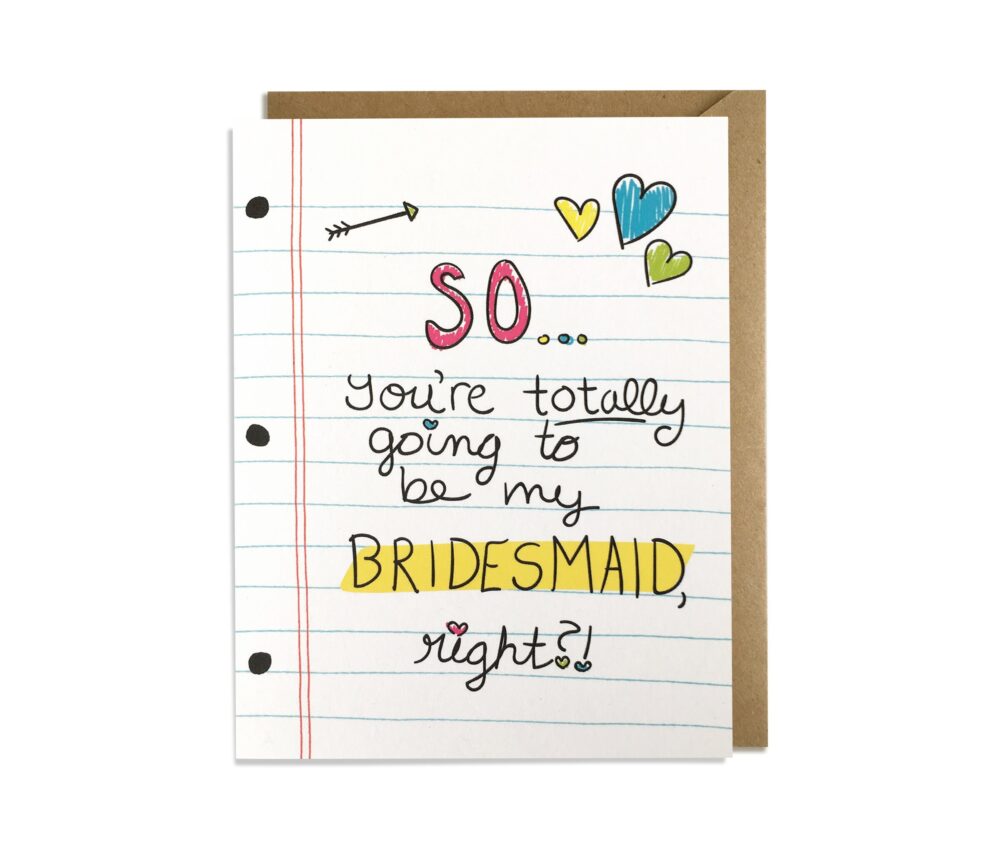 SO...
you're totally
going to
be my
BRIDESMAID,
right?!